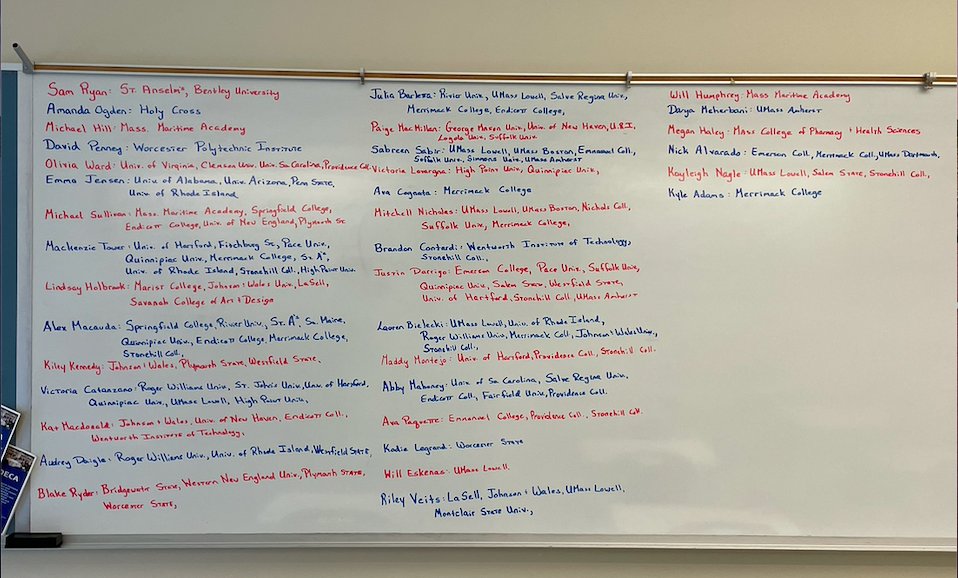 Sam Ryan: St. Anselms, Bentley University
Amanda Ogden: Holy Cross
Michael Hill: Mass. Maritime Academy
David Penney: Worcester Polytechnic Institute
Olivia Ward: Univ. of Virginia, Clemson Univ. Univ. So. Carolina, Providence Coll.
Emma Jensen: Univ of Alabama, Univ. Arizona, Penn State,
Univ. of Rhode Island
Michael Sullivan: Mass. Maritime Academy, Springfield College,
Endicott College, Univ. of New England, Plymouth St.
Mackenzie Tower: Univ. of Hartford, Fitchburg St, Pace Univ.,
Quinnipiac Univ., Merrimack College, St. A's,
Univ. of Rhode Island, Stonehill Coll., High Point Univ.
Lindsay Holbrook: Marist College, Johnson & Wales Univ., LaSell,
Savanah College of Art & Design
Alex Macauda: Springfield College, Rivier Univ., St. A's, So. Maine,
Quinnipiac Univ., Endicott College, Merrimack College,
Stonehill Coll,
Kiley Kennedy: Johnson & Wales, Plymouth State, Westfield State,
Victoria Catanzano: Roger Williams Univ., St. John's Univ., Univ. of Hartford,
Quinnipiac Univ., UMass Lowell, High Point Univ.,
Kat Macdonald: Johnson & Wales, Univ. of New Haven, Endicott Coll.,
Wentworth Institute of Technology,
Audrey Daigle: Roger Williams Univ., Univ. of Rhode Island, Westfield State,
Blake Ryder: Bridgewater State, Western New England Univ., Plymouth State,
Worcester State,
Julia Barbosa: Rivier Univ., UMass Lowell, Salve Regina Univ.,
Merrimack College, Endicott College,
Paige MacMillan: George Mason Univ., Univ. of New Haven, U.R.I.,
Loyola Univ., Suffolk Univ.
Sabreen Sabir: UMass Lowell, UMass Boston, Emmanuel Coll.,
Suffolk Univ., Simmons Univ., UMass Amherst
Victoria Lovargna: High Point Univ., Quinnipiac Univ.,
Ava Cognata: Merrimack College
Mitchell Nicholes: UMass Lowell, UMass Boston, Nichols Coll.,
Suffolk Univ., Merrimack College,
Brandon Contardi: Wentworth Institute of Technology,
Stonehill Coll.,
Justin Darrigo: Emerson College, Pace Univ., Suffolk Univ.,
Quinnipiac Univ., Salem State, Westfield State,
Univ. of Hartford, Stonehill Coll., UMass Amherst
Lauren Bielecki: UMass Lowell, Univ. of Rhode Island,
Roger Williams Univ., Merrimack Coll., Johnson & Wales Univ.,
Stonehill Coll.,
Maddy Montejo: Univ. of Hartford, Providence Coll., Stonehill Coll.
Abby Mahoney: Univ. of So Carolina, Salve Regina Univ.,
Endicott Coll., Fairfield Univ., Providence Coll.
Ava Paquette: Emmanuel College, Providence Coll., Stonehill Coll.
Kadie Legrand: Worcester State
Will Eskenas: UMass Lowell
Riley Veits: LaSell, Johnson & Wales, UMass Lowell,
Montclair State Univ.,
Will Humphrey: Mass Maritime Academy
Darya Meherbani: UMass Amherst
Megan Haley: Mass College of Pharmacy & Health Sciences
Nick Alvarado: Emerson Coll., Merrimack Coll., UMass Dartmouth,
Kayleigh Nagle: UMass Lowell, Salem State, Stonehill Coll.,
Kyle Adams: Merrimack College
DECA